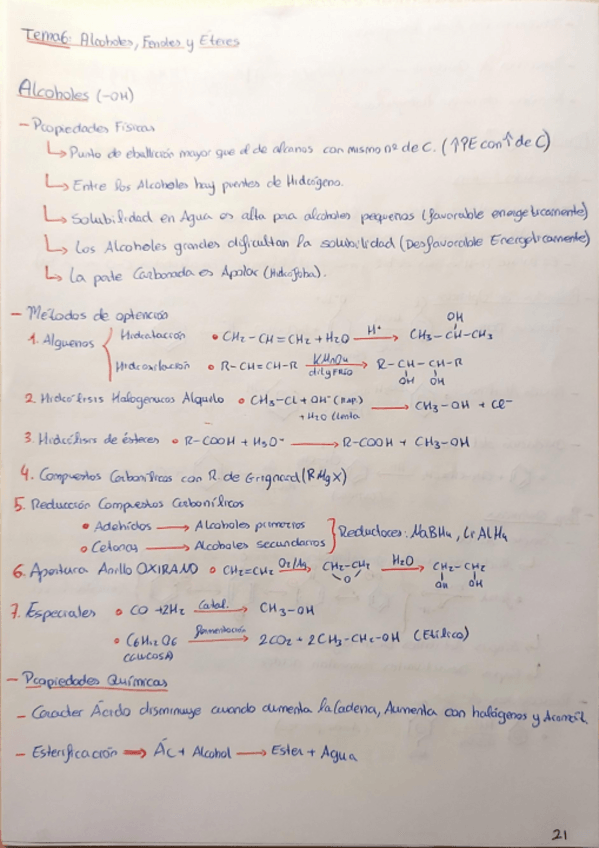 Tema6: Alcoholes, Fenoles y Éteres
Alcoholes (-OH)
- Propiedades Físicas
↳ Punto de ebullición mayor que el de alcanos con mismo nº de C. (↑PE con ↑ de C)
↳ Entre los Alcoholes hay puentes de Hidrógeno.
↳ Solubilidad en Agua es alta para alcoholes pequeños (favorable energeticamente)
↳ Los Alcoholes grandes dificultan la solubilidad (Desfavorable Energeticamente)
↳ La parte Carbonada es Apolar (Hidrofoba).
- Métodos de optención
1. Alquenos { Hidratación • CH2-CH=CH2 + H2O —H+→ CH3-CH-CH3
OH
Hidroxilación • R-CH=CH-R —KMnO4 dil y FRIO→ R-CH-CH-R
OH OH
2. Hidrólisis Halogenuros Alquilo • CH3-Cl + OH- (RAP.) → CH3-OH + Cl-
+ H2O (Lenta
3. Hidrólisis de ésteres • R-COOH + H3O+ → R-COOH + CH3-OH
4. Compuestos Carbonílicos con R. de Grignard (RMgX)
5. Reducción Compuestos Carbonílicos
• Adehidos → Alcoholes primarios
• Cetonas → Alcoholes secundarios } Reductores: NaBH4, LiAlH4
6. Apertura Anillo OXIRANO • CH2=CH2 —O2/Ag→ CH2-CH2 —H2O→ CH2-CH2
O OH OH
7. Especiales • CO + 2H2 —Catal.→ CH3-OH
• C6H12O6 —fermentación→ 2CO2 + 2CH3-CH2-OH (Etílico)
(GLUCOSA)
- Propiedades Químicas
- Caracter Ácido disminuye cuando aumenta la Cadena, Aumenta con halógenos y Aromát.
- Esterificación → Ác + Alcohol → Ester + Agua
21